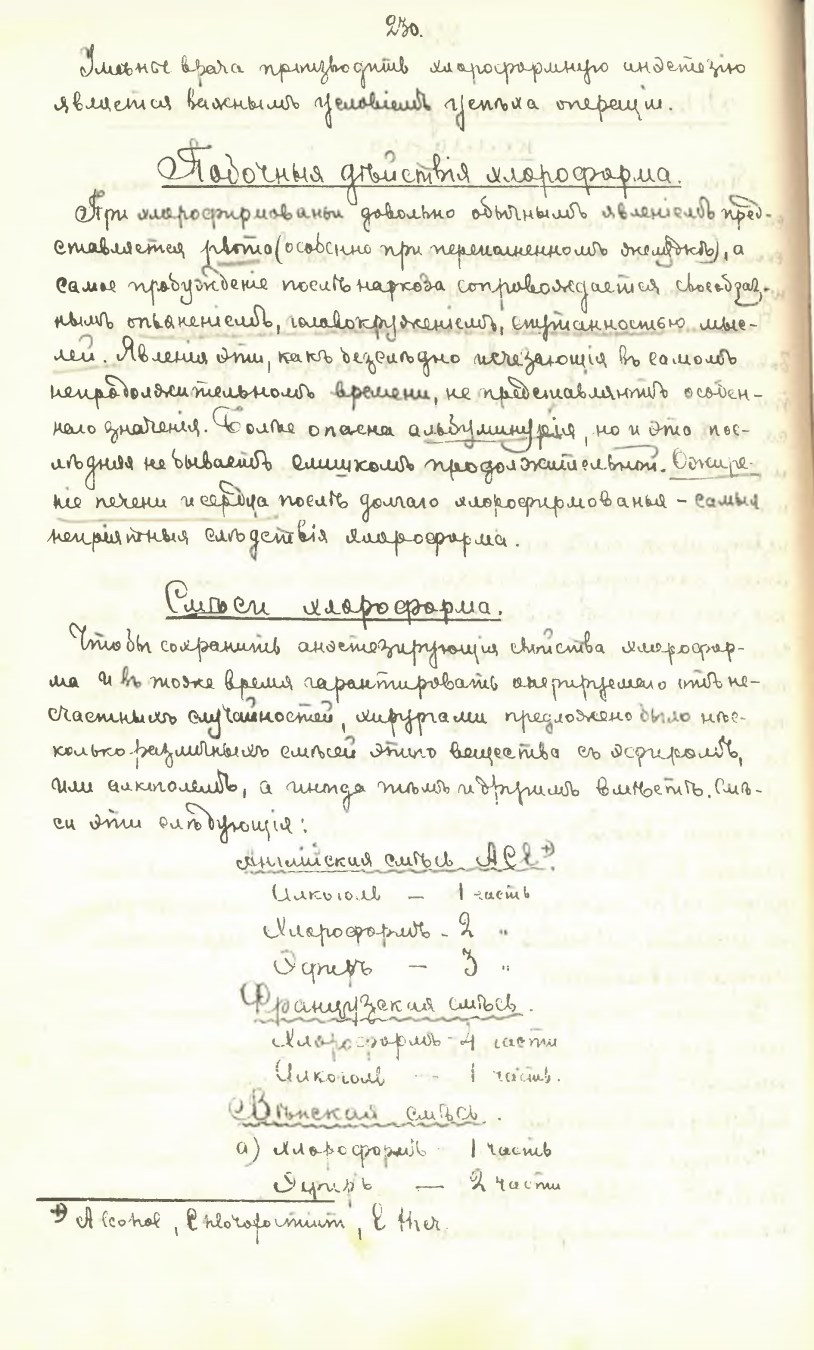 230.
Уменье врача производить хлороформную анэстезію
является важнымъ условіемъ успѣха операціи.
Побочныя дѣйствія хлороформа.
При хлороформированьи довольно обычнымъ явленіемъ пред-
ставляется рвота (особенно при переполненномъ желудкѣ), а
самое пробужденіе послѣ наркоза сопровождается своеобраз-
нымъ опьяненіемъ, головокруженіемъ, спутанностью мыс-
лей. Явленія эти, какъ безслѣдно исчезающія въ самомъ
непродолжительномъ времени, не представляютъ особен-
наго значенія. Болѣе опасна альбуминурія, но и это пос-
лѣдняя не бываетъ слишкомъ продолжительной. Ожире-
ніе печени и сердца послѣ долгаго хлороформированья – самыя
непріятныя слѣдствія хлороформа.
Смѣси хлороформа.
Чтобы сохранить анэстезирующія свойства хлорофор-
ма и въ тоже время гарантировать оперируемаго отъ не-
счастныхъ случайностей, хирургами предложено было нѣс-
колько различныхъ смѣсей этого вещества съ эфиромъ,
или алкоголемъ, а иногда тѣмъ и другимъ вмѣстѣ. Смѣ-
си эти слѣдующія:
Англійская смѣсь ACE +).
Алкоголь — 1 часть
Хлороформъ – 2 "
Эфиръ — 3 "
Французская смѣсь.
Хлороформъ – 4 части
Алкоголь – 1 часть.
Вѣнская смѣсь.
а) Хлороформъ 1 часть
Эфиръ — 2 части
+) Alcohol, Chloroformium, Ether.